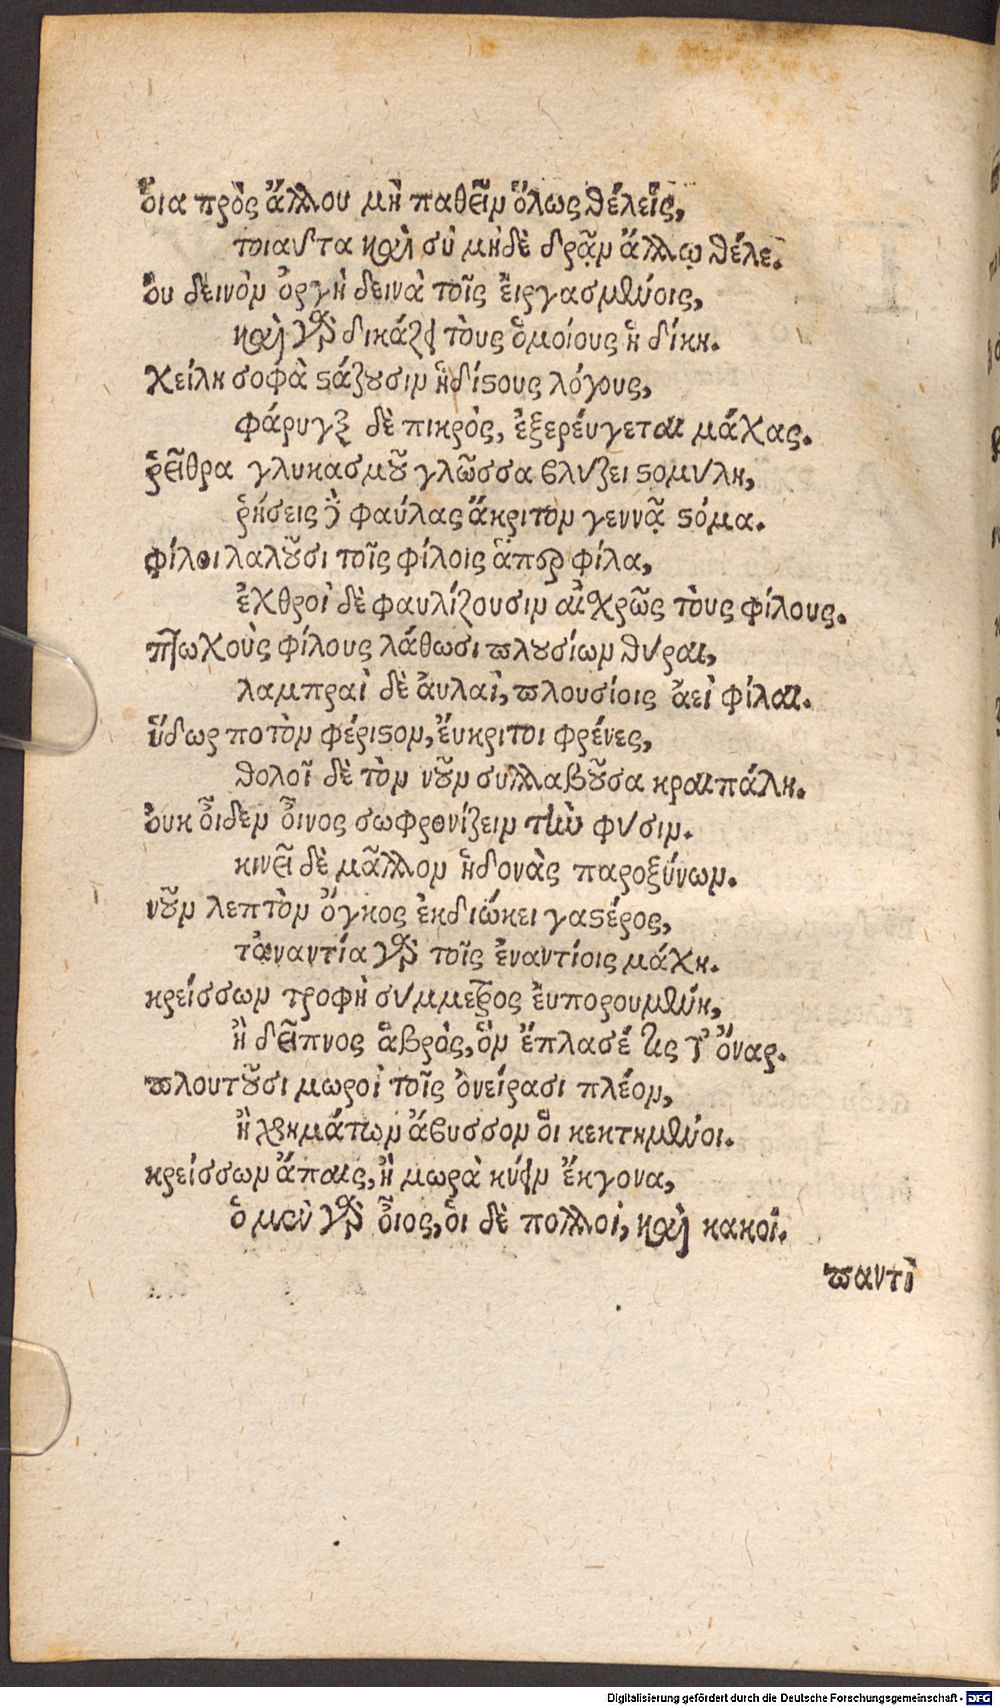 ὅια πρὸς ἄλλου μὴ παθεῖν ὅλως θέλεις,
τοιαῦτα καὶ σὺ μηδὲ δρᾷν ἄλλῳ θέλε.
ὀυ δεινὸν ὀργὴ δεινὰ τοῖς ἐιργασμένοις,
καὶ γὰρ δικάζει τοὺς ὁμοίους ἡ δίκη.
χείλη σοφὰ στάζουσιν ἡδίστους λόγους,
φάρυγξ δὲ πικρὸς, ἐξερεύγεται μάχας.
ῥεῖθρα γλυκασμοῦ γλῶσσα βλύζει στομύλη,
ῥήσεις δὲ φαύλας ἄκριτον γεννᾷ στόμα.
φίλοι λαλοῦσι τοῖς φίλοις ἅπερ φίλα,
ἐχθροὶ δὲ φαυλίζουσιν αἰσχρῶς τοὺς φίλους.
πτωχοὺς φίλους λάθωσι πλουσίων θύραι,
λαμπραὶ δὲ ἀυλαὶ, πλουσίοις ἀεὶ φίλαι.
ὕδωρ ποτὸν φέριστον, ἔυκριτοι φρένες,
θολοῖ δὲ τὸν νοῦν συλλαβοῦσα κραιπάλη.
ὀυκ ὀῖδεν ὀῖνος σωφρονίζειν τὴν φύσιν.
κινεῖ δὲ μᾶλλον ἡδονὰς παροξύνων.
νοῦν λεπτὸν ὄγκος ἐκδιώκει γαστέρος,
τἀναντία γὰρ τοῖς ἐναντίοις μάχη.
κρείσσων τροφὴ σύμμετρος ἐυπορουμένη,
ἢ δεῖπνος ἁβρὸς, ὃν ἔπλασέ τις τ' ὄναρ.
πλουτοῦσι μωροὶ τοῖς ὀνείρασι πλέον,
ἢ χρημάτων ἄβυσσον ὁι κεκτημένοι.
κρείσσων ἄπαις, ἢ μωρὰ κύειν ἔκγονα,
ὁ μὲν γὰρ ὀῖος, ὁι δὲ πολλοὶ, καὶ κακοί.
παντὶ
Digitalisierung gefördert durch die Deutsche Forschungsgemeinschaft - DFG